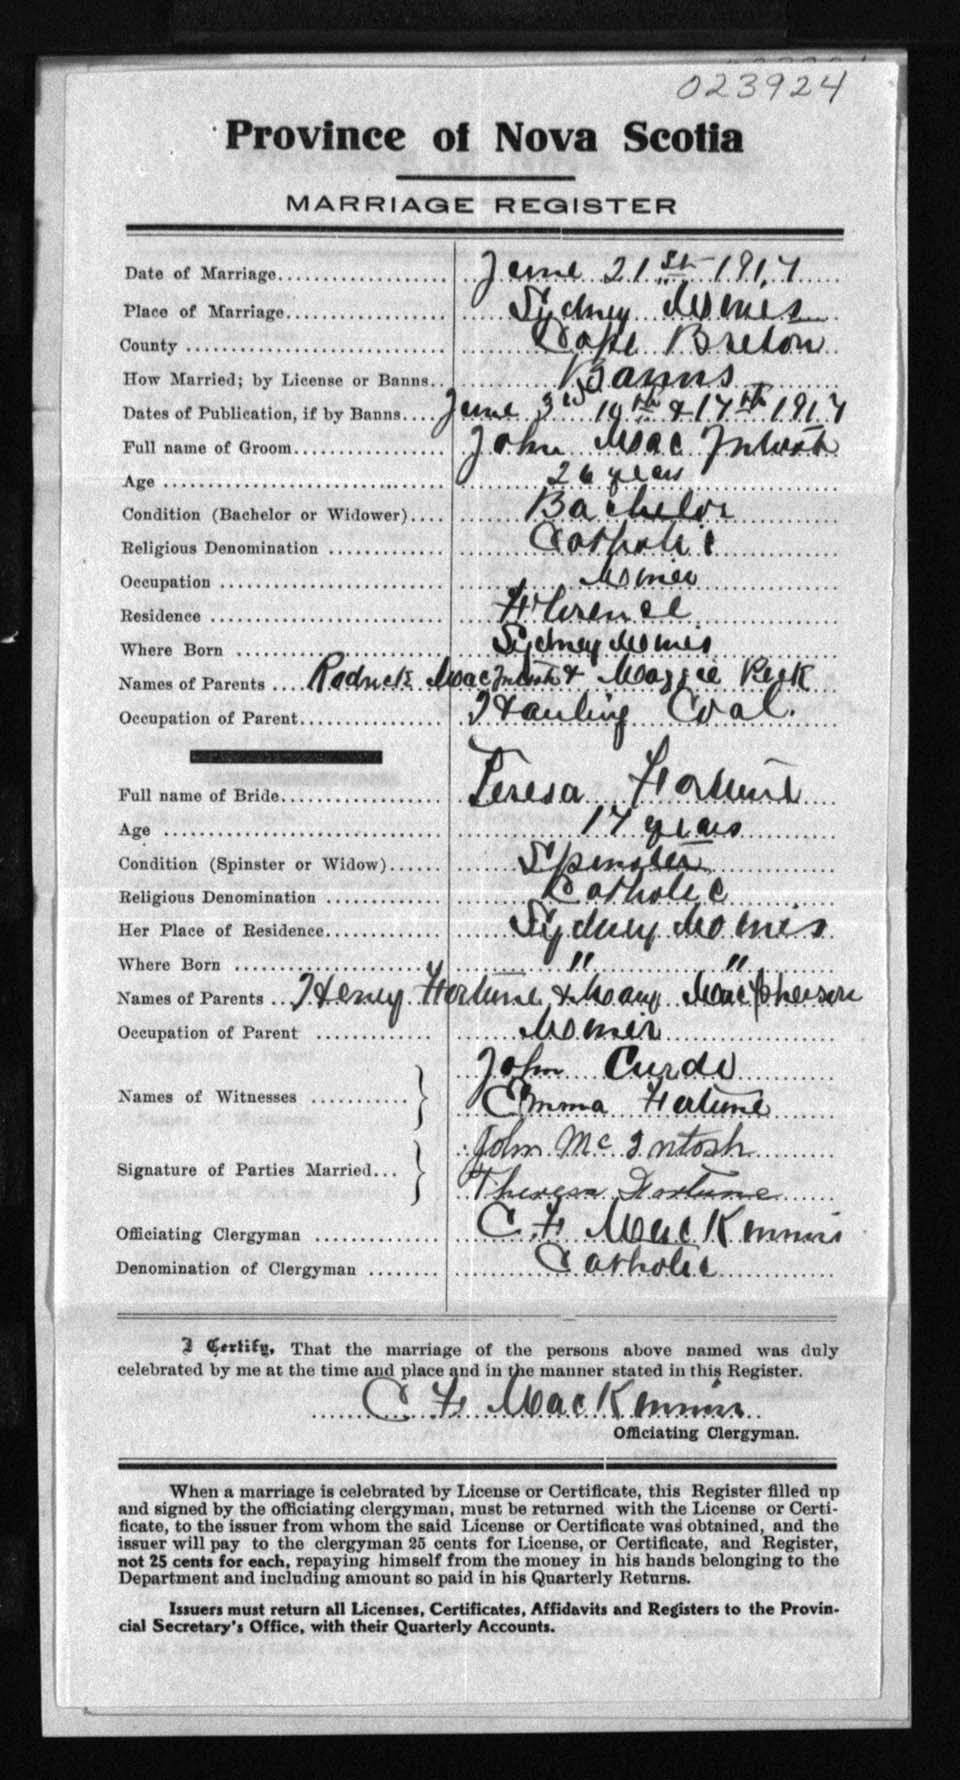 023924
Province of Nova Scotia
MARRIAGE REGISTER
Date of Marriage June 21st 1917
Place of Marriage Sydney Mines
County Cape Breton
How Married; by License or Banns Banns
Dates of Publication, if by Banns June 3rd 10th & 17th 1917
Full name of Groom John MacIntosh
Age 26 years
Condition (Bachelor or Widower) Bachelor
Religious Denomination Catholic
Occupation Miner
Residence Florence
Where Born Sydney Mines
Names of Parents Roderick MacIntosh & Maggie
Occupation of Parent Hauling Coal.
Full name of Bride Teresa Fortune
Age 17 years
Condition (Spinster or Widow) Spinster
Religious Denomination Catholic
Her Place of Residence Sydney Mines
Where Born " "
Names of Parents Henry Fortune & Mary MacPherson
Occupation of Parent Miner
Names of Witnesses } John Curdo
Emma Fortune
Signature of Parties Married } John McIntosh
Theresa Fortune
Officiating Clergyman C. F. MacKinnon
Denomination of Clergyman Catholic
I Certify, That the marriage of the persons above named was duly
celebrated by me at the time and place and in the manner stated in this Register.
C F MacKinnon
Officiating Clergyman.
When a marriage is celebrated by License or Certificate, this Register filled up
and signed by the officiating clergyman, must be returned with the License or Certi-
ficate, to the issuer from whom the said License or Certificate was obtained, and the
issuer will pay to the clergyman 25 cents for License, or Certificate, and Register,
not 25 cents for each, repaying himself from the money in his hands belonging to the
Department and including amount so paid in his Quarterly Returns.
Issuers must return all Licenses, Certificates, Affidavits and Registers to the Provin-
cial Secretary's Office, with their Quarterly Accounts.